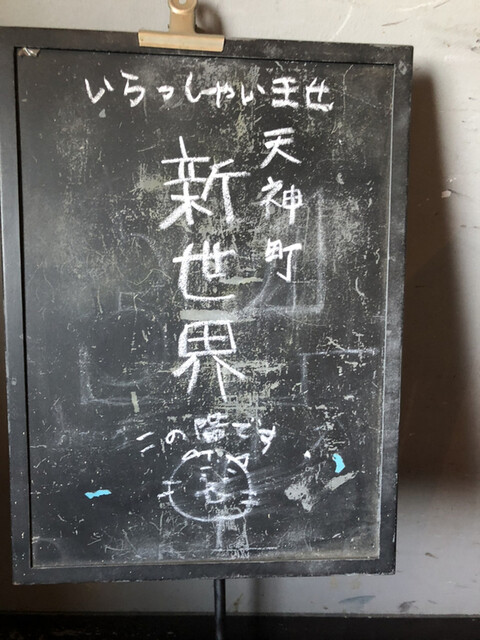 いらっしゃいませ
天神町
新世界
この階です